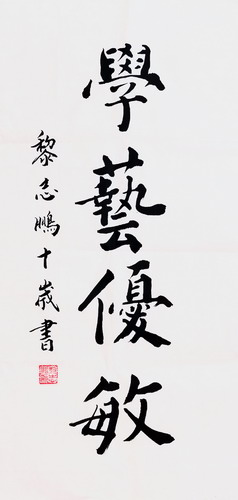 學藝優敏
黎志鵬十歲書